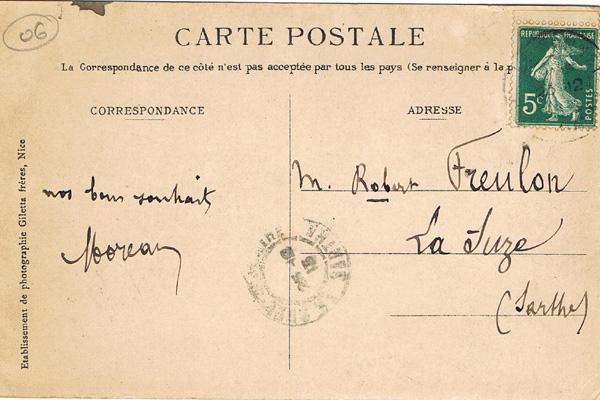 06
CARTE POSTALE
La Correspondance de ce côté n'est pas acceptée par tous les pays (Se renseigner à la p
REPUBLIQUE FRANÇAISE
5c
POSTES
CORRESPONDANCE
ADRESSE
nos bons souhaits
Moreau
M. Robert Freulon
La Suze
(Sarthe)
Etablissement de photographie Giletta frères, Nice